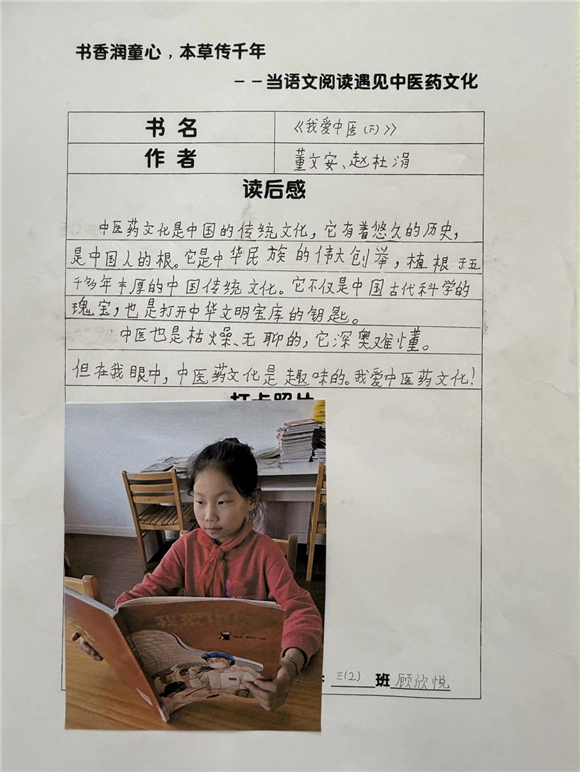 书香润童心，本草传千年
--当语文阅读遇见中医药文化
书名 《我爱中医(下)》
作者 董文安、赵杜涓
读后感
中医药文化是中国的传统文化，它有着悠久的历史，
是中国人的根。它是中华民族的伟大创举，植根于五
千多年丰厚的中国传统文化。它不仅是中国古代科学的
瑰宝，也是打开中华文明宝库的钥匙。
中医也是枯燥、无聊的，它深奥难懂。
但在我眼中，中医药文化是趣味的。我爱中医药文化！
打卡照片
我爱中医
三(2) 班 顾欣悦